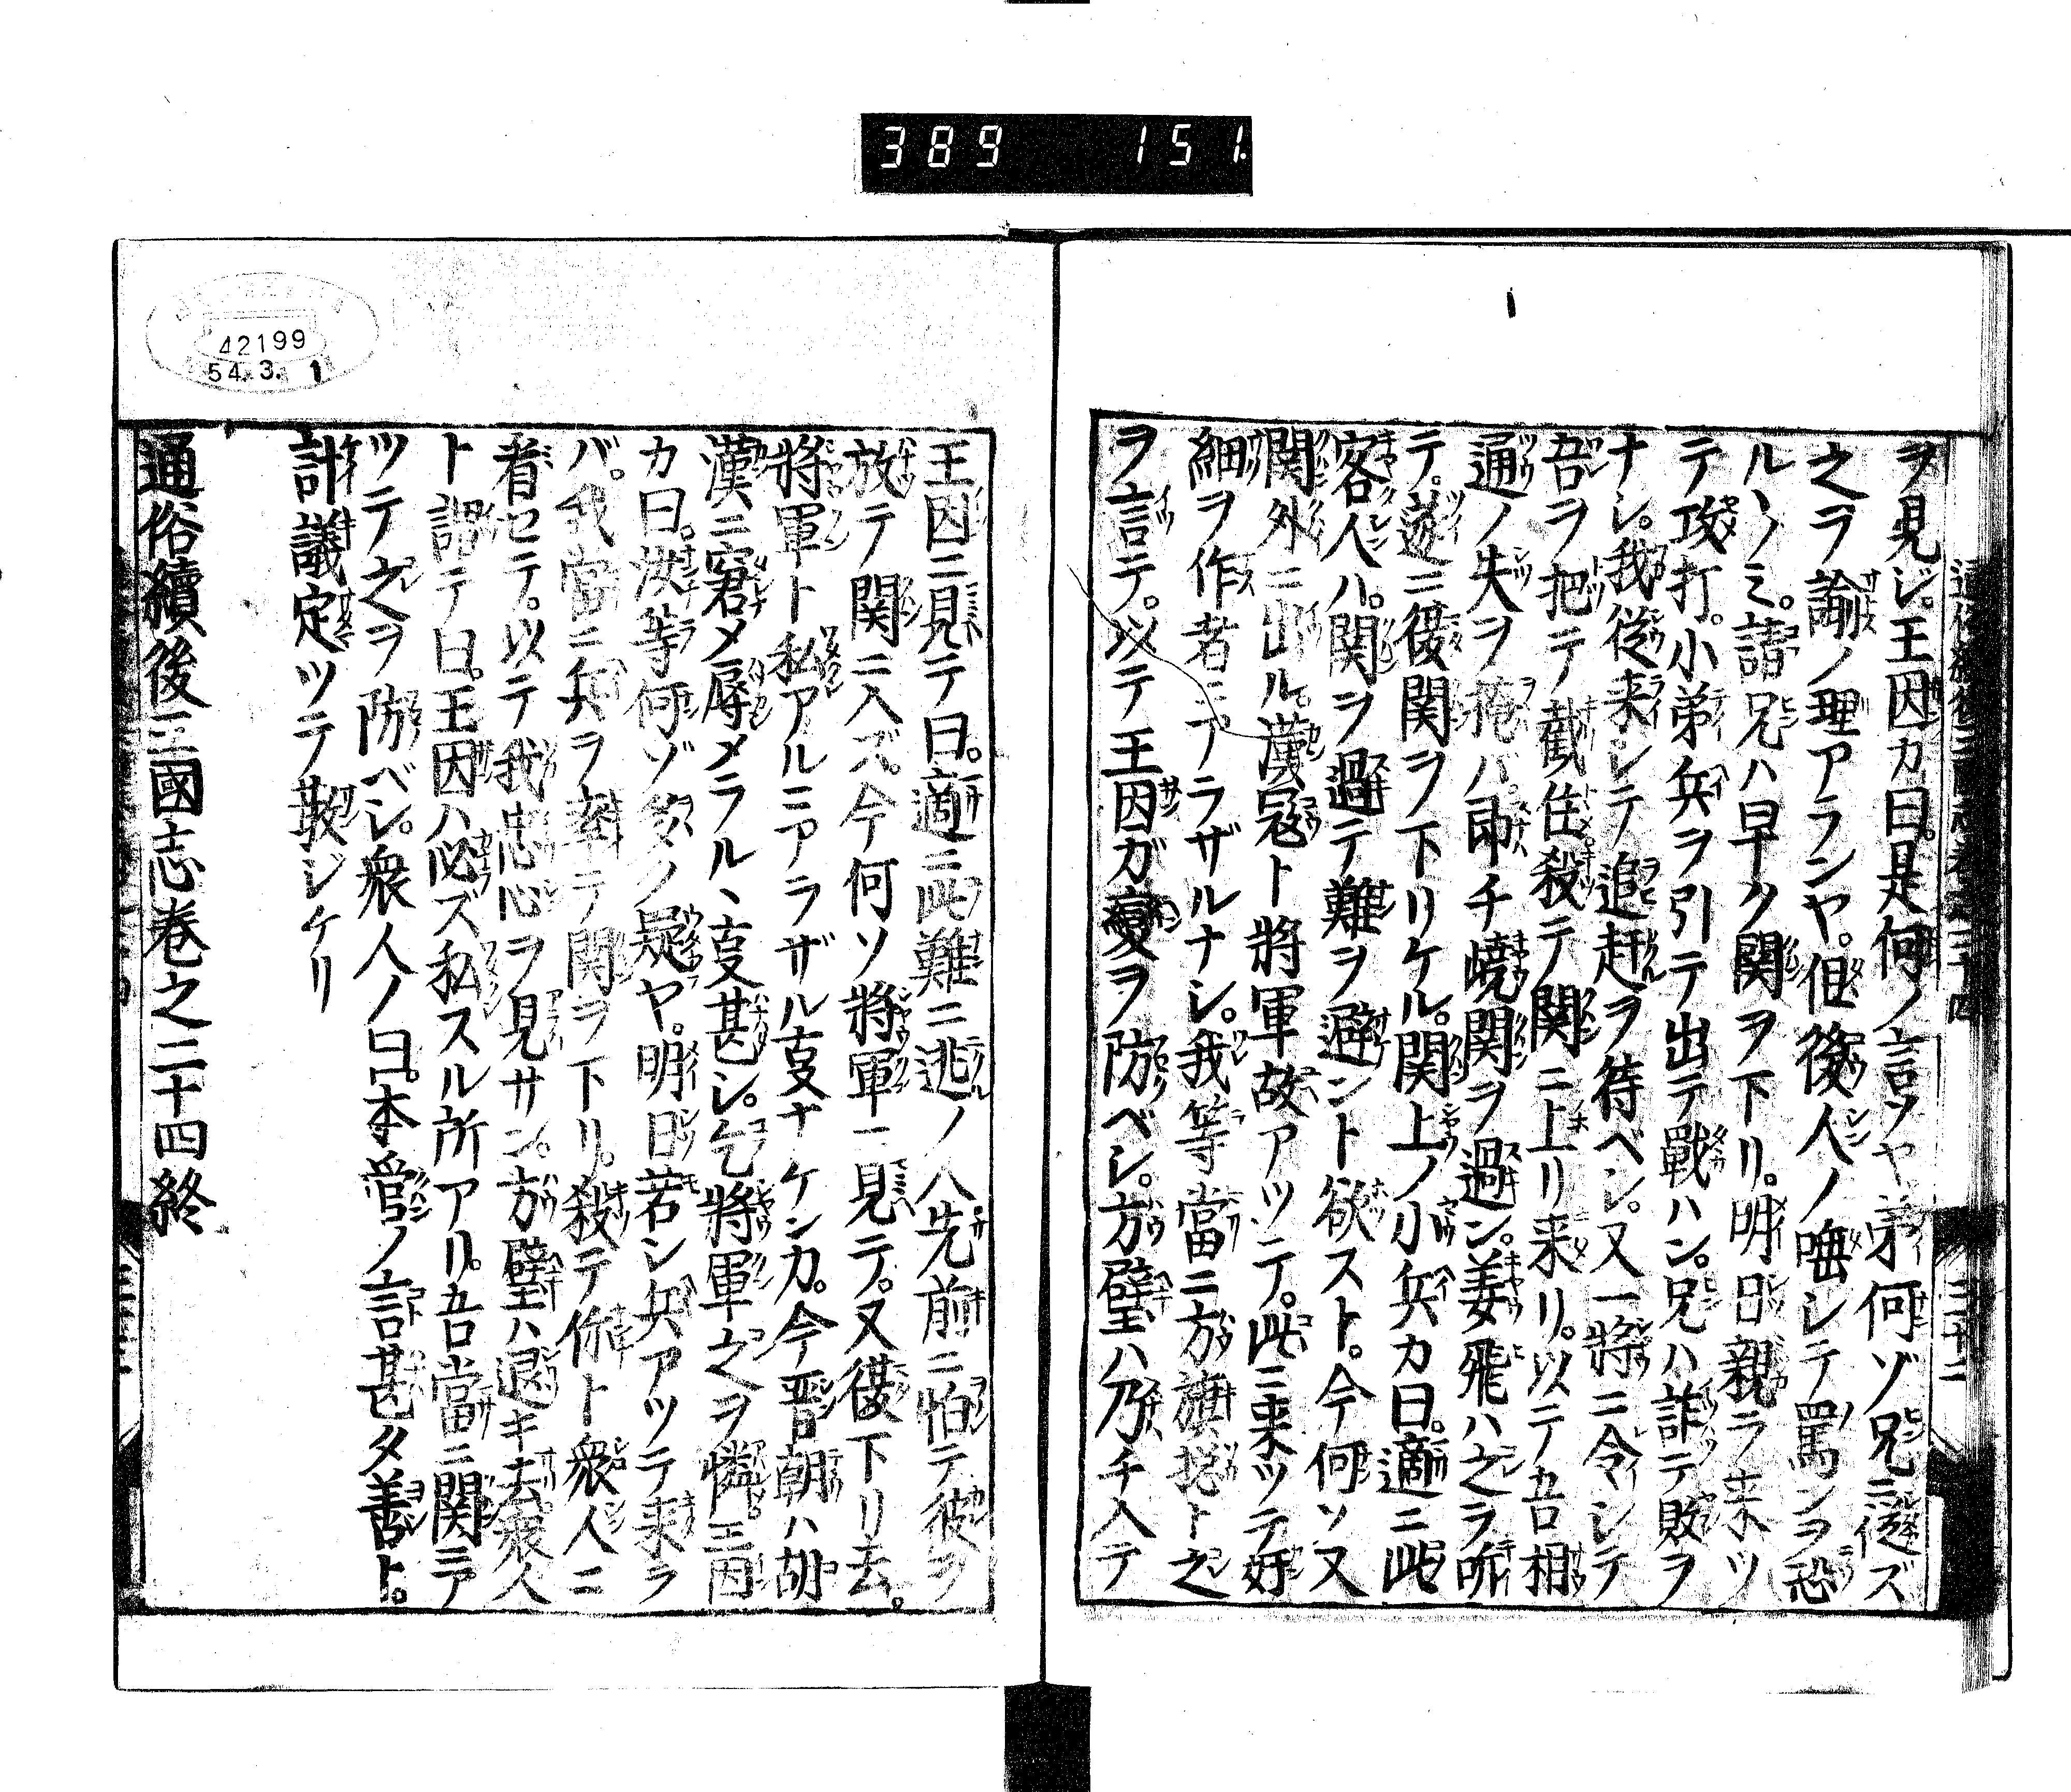 389 151
ヲ見ジ。王因カ曰。是何ノ言ソヤ弟何ゾ兄ニ從ズ
之ヲ諭ノ理アランヤ。但後人ノ唾シテ罵ンヲ恐
ルヽノミ。請兄ハ早ク関ヲ下リ。明日親ラ来ツ
テ攻打。小弟兵ヲ引テ出テ戰ハン。兄ハ詐テ敗ヲ
ナシ。我從来シテ追赶ヲ待ベシ。又一將ニ令シテ
吾ヲ把テ截住殺テ関ニ上リ来リ。以テ吾相
通ノ失ヲ掩バ。即チ嶢関ヲ過ン。姜飛ハ之ヲ听
テ。遂ニ復関ヲ下リケル。関上ノ小兵カ曰。適ニ此
客人ハ。関ヲ過テ難ヲ避ント欲スト。今何ソ又
関外ニ出ル。漢冦ト將軍故アツテ。此ニ来ツテ奸
細ヲ作者ニアラザルナシ。我等當ニ方旗捴ト之
ヲ言テ。以テ王因ガ變ヲ防ベシ。方璧ハ乃チ入テ
王因ニ見テ曰。適ニ此難ニ逃ノ人先前ニ怕テ彼ヲ
放テ関ニ入ズ。今何ソ將軍一見テ。又復下リ去。
將軍ト私アルニアラザル叓ナケンカ。今晋朝ハ胡
漢ニ窘メ辱メラルヽ叓甚シ。乞將軍之ヲ憐。王因
カ曰。汝等何ゾ多ノ疑ヤ。明日若シ兵アツテ来ラ
バ。我當ニ兵ヲ率テ関ヲ下リ。殺テ你ト衆人ニ
看セテ。以テ我忠心ヲ見サン。方璧ハ退キ去衆人
ト謂テ曰。王因ハ必ズ私スル所アリ。吾當ニ関テア
ツテ之ヲ防ベシ。衆人ノ曰。本管ノ言甚タ善ト。
計議定ツテ散ジケリ
通俗續後三國志巻之二十四終
42199
54.3.1